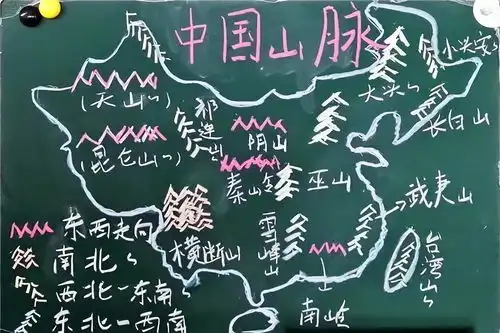 中国山脉
小兴安
大兴
长白山
(天山)
祁连山
阴山
(昆仑山)
秦山
巫山
武夷山
横断山
雪峰山
台湾山
南岭
东西走向
南北
西北－东南
东北－西南